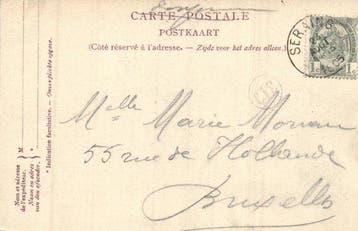 CARTE POSTALE
POSTKAART
(Côté réservé à l'adresse. — Zijde voor het adres alleen.)
SERAING
1c 1c
Melle Marie Moreau
55 rue de Hollande
Bruxelles
M
Nom et adresse de l'expéditeur. *
Naam en adres van den afzender. *
* Indication facultative. — Onverplichte opgave.